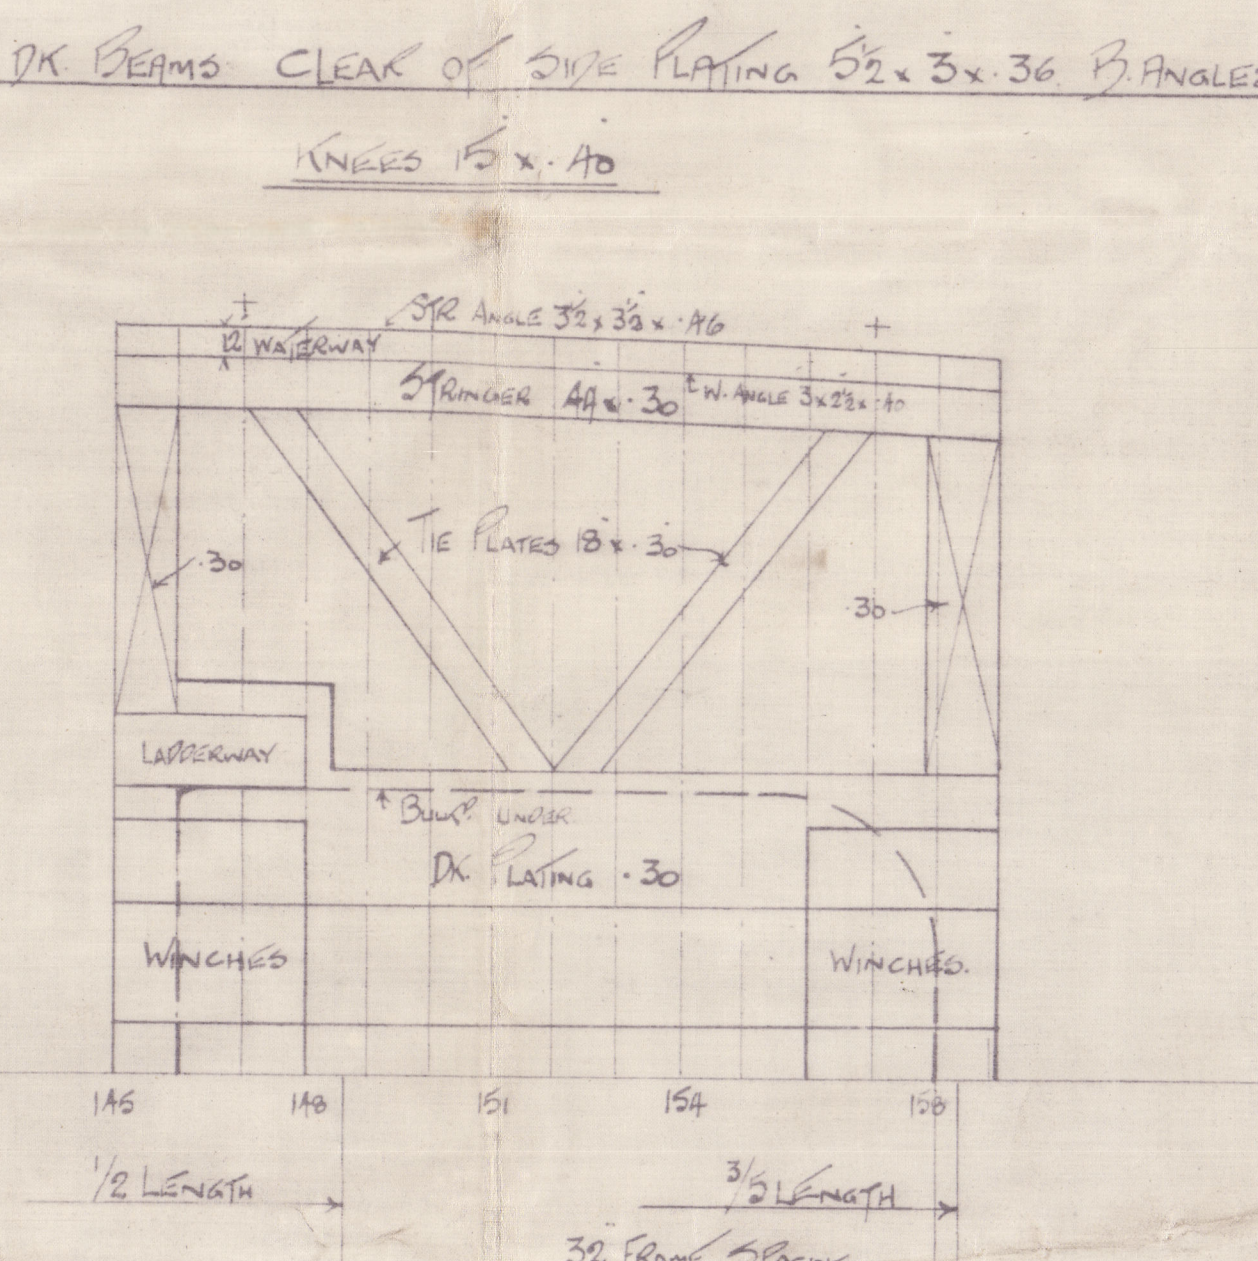 DK. BEAMS CLEAR OF SIDE PLATING 5½ x 3 x .36. B. ANGLES
KNEES 15" x .40
STR ANGLE 3½ x 3½ x .46
12" WATERWAY
STRINGER 44 x .30
W. ANGLE 3 x 2½ x .40
TIE PLATES 18" x .30
.30
.30
LADDERWAY
BULKD. UNDER
DK. PLATING .30
WINCHES
WINCHES.
145 148 151 154 158
1/2 LENGTH
3/5 LENGTH
32" FRAME SPACING